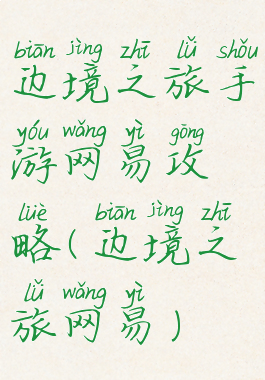 biān jìng zhī lǚ shǒu
边境之旅手
yóu wǎng yì gōng
游网易攻
lüè biān jìng zhī
略(边境之
lǚ wǎng yì
旅网易)